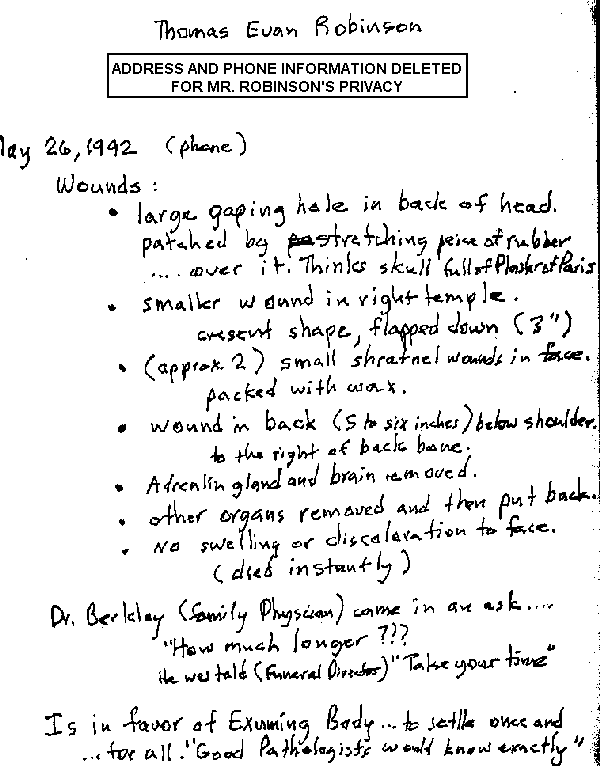 Thomas Evan Robinson
ADDRESS AND PHONE INFORMATION DELETED
FOR MR. ROBINSON'S PRIVACY
May 26, 1992 (phone)
Wounds:
• large gaping hole in back of head.
patched by stretching peice of rubber
.... over it. Thinks skull full of Plaster of Paris
• smaller wound in right temple.
cresent shape, flapped down (3")
• (approx 2) small shrapnel wounds in face.
packed with wax.
• wound in back (5 to six inches) below shoulder.
to the right of back bone.
• Adrenlin gland and brain removed.
• other organs removed and then put back.
• No swelling or discoloration to face.
(died instantly)
Dr. Berkley (family Physician) came in an ask....
"How much longer ???
He was told (Funeral Director) "Take your time"
Is in favor of Exuming Body... to settle once and
... for all. "Good Pathologists would know exactly"